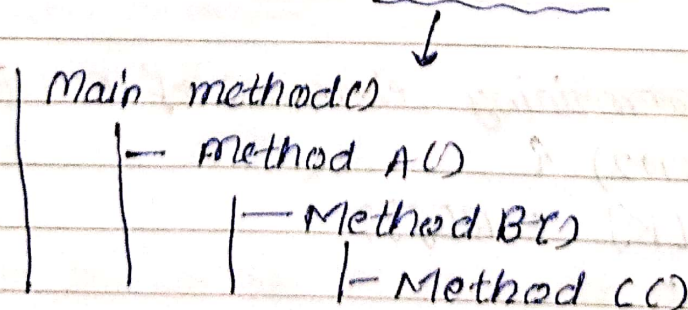 Main method()
Method A()
Method B()
Method C()